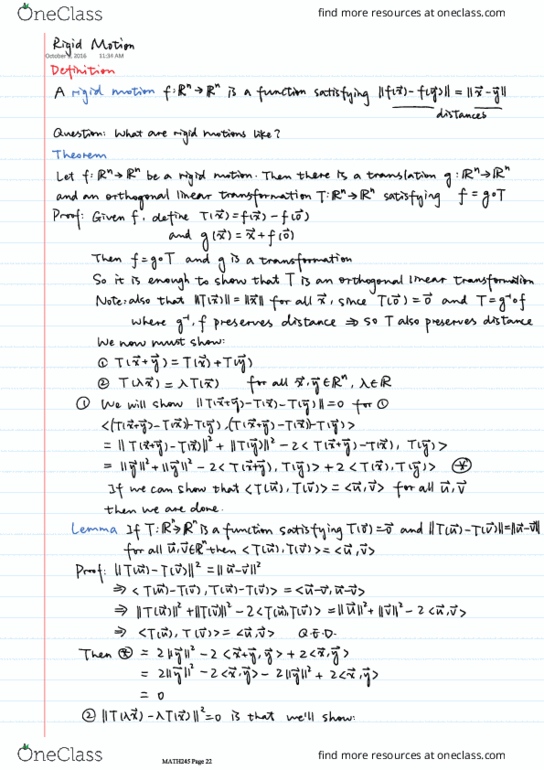 OneClass
find more resources at oneclass.com
Rigid Motion
October 6, 2016 11:34 AM
Definition
A rigid motion f: ℝⁿ → ℝⁿ is a function satisfying ||f(x⃗) - f(y⃗)|| = ||x⃗ - y⃗||
distances
Question: What are rigid motions like?
Theorem
Let f: ℝⁿ → ℝⁿ be a rigid motion. Then there is a translation g: ℝⁿ → ℝⁿ
and an orthogonal linear transformation T: ℝⁿ → ℝⁿ satisfying f = g∘T
Proof: Given f, define T(x⃗) = f(x⃗) - f(0⃗)
and g(x⃗) = x⃗ + f(0⃗)
Then f = g∘T and g is a transformation
So it is enough to show that T is an orthogonal linear transformation
Note: also that ||T(x⃗)|| = ||x⃗|| for all x⃗, since T(0⃗) = 0⃗ and T = g⁻¹∘f
where g⁻¹, f preserves distance ⇒ so T also preserves distance
We now must show:
① T(x⃗+y⃗) = T(x⃗) + T(y⃗)
② T(λx⃗) = λT(x⃗) for all x⃗, y⃗ ∈ ℝⁿ, λ ∈ ℝ
① We will show ||T(x⃗+y⃗) - T(x⃗) - T(y⃗)|| = 0 for ①
<(T(x⃗+y⃗) - T(x⃗)) - T(y⃗), (T(x⃗+y⃗) - T(x⃗)) - T(y⃗)>
= ||T(x⃗+y⃗) - T(x⃗)||² + ||T(y⃗)||² - 2<T(x⃗+y⃗) - T(x⃗), T(y⃗)>
= ||y⃗||² + ||y⃗||² - 2<T(x⃗+y⃗), T(y⃗)> + 2<T(x⃗), T(y⃗)> ⊛
If we can show that <T(u⃗), T(v⃗)> = <u⃗, v⃗> for all u⃗, v⃗
then we are done.
Lemma If T: ℝⁿ → ℝⁿ is a function satisfying T(0⃗) = 0⃗ and ||T(u⃗) - T(v⃗)|| = ||u⃗ - v⃗||
for all u⃗, v⃗ ∈ ℝⁿ then <T(u⃗), T(v⃗)> = <u⃗, v⃗>
Proof: ||T(u⃗) - T(v⃗)||² = ||u⃗ - v⃗||²
⇒ <T(u⃗) - T(v⃗), T(u⃗) - T(v⃗)> = <u⃗ - v⃗, u⃗ - v⃗>
⇒ ||T(u⃗)||² + ||T(v⃗)||² - 2<T(u⃗), T(v⃗)> = ||u⃗||² + ||v⃗||² - 2<u⃗, v⃗>
⇒ <T(u⃗), T(v⃗)> = <u⃗, v⃗> Q.E.D.
Then ⊛ = 2||y⃗||² - 2<x⃗+y⃗, y⃗> + 2<x⃗, y⃗>
= 2||y⃗||² - 2<x⃗, y⃗> - 2||y⃗||² + 2<x⃗, y⃗>
= 0
② ||T(λx⃗) - λT(x⃗)||² = 0 is that we'll show:
OneClass
MATH245 Page 22
find more resources at oneclass.com